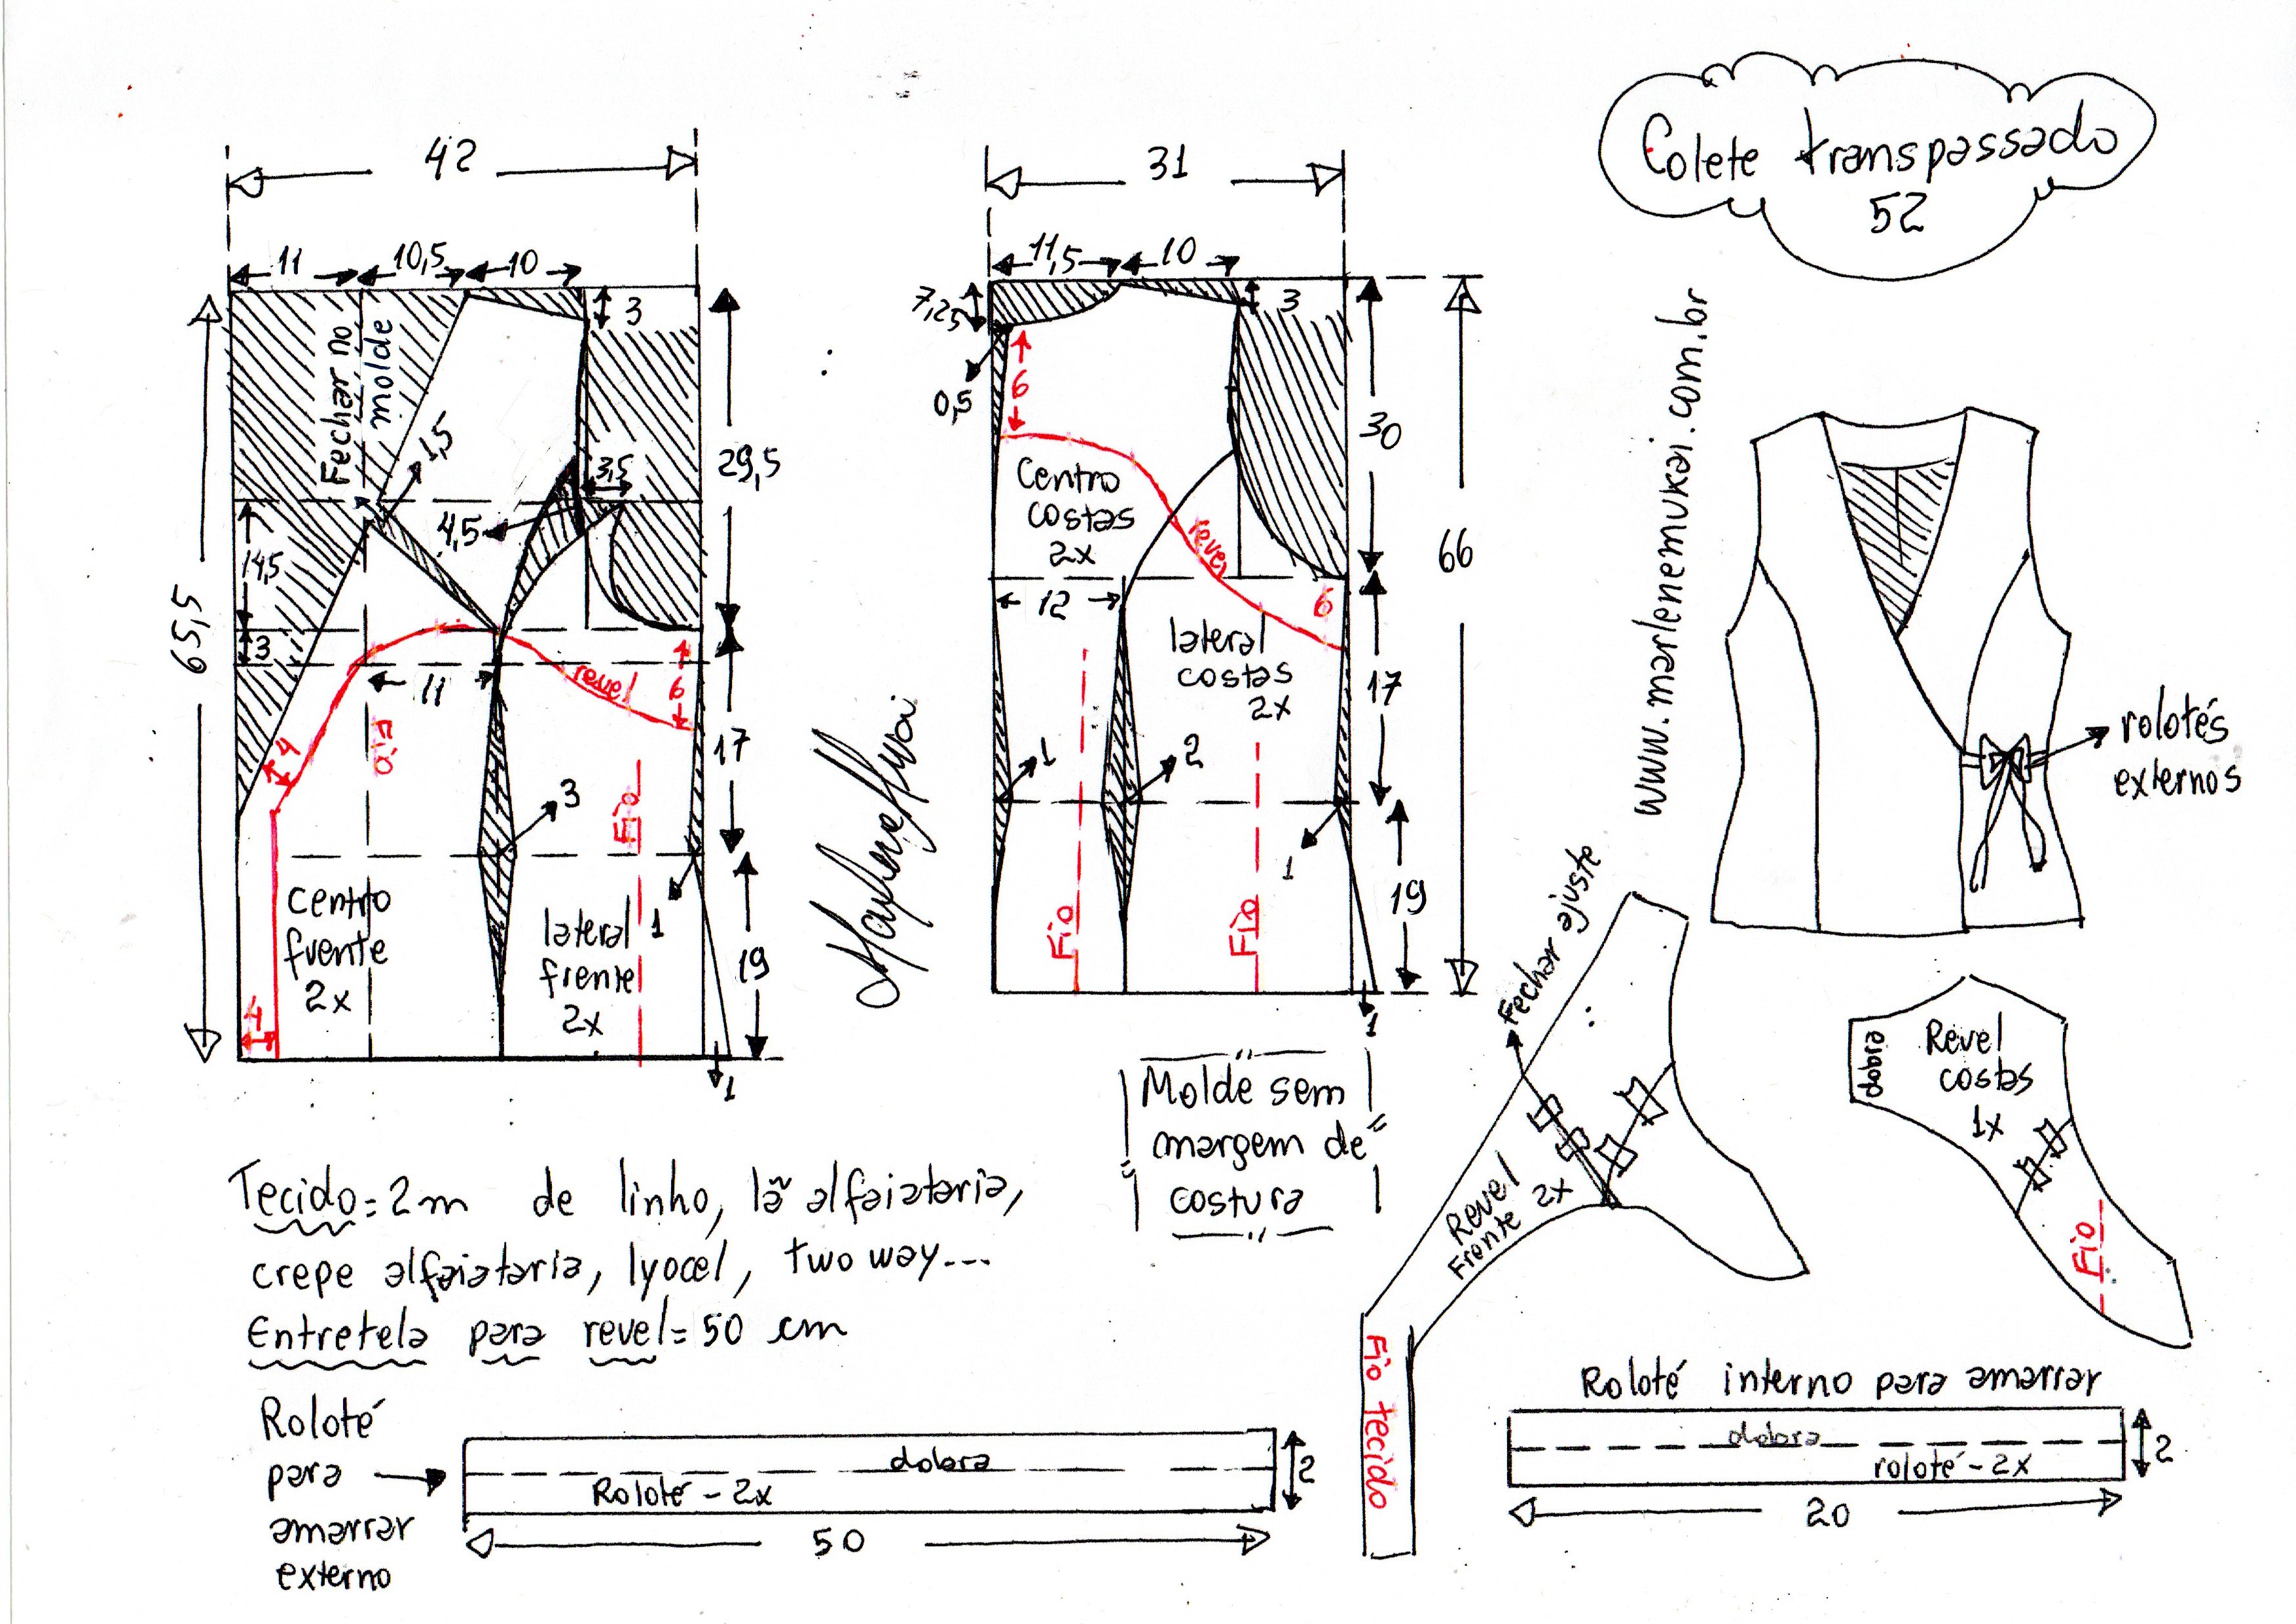 Colete transpassado
52
42
11
10,5
10
3
Fechar no
molde
1,5
3,5
4,5
29,5
14,5
3
65,5
11
revel
6
4
Fio
17
3
Fio
1
centro
frente
2x
lateral
frente
2x
19
4
1
31
11,5
10
7,25
3
0,5
6
30
centro
costas
2x
revel
66
12
6
lateral
costas
2x
17
1
2
1
Fio
Fio
19
1
www.marlenemukai.com.br
rolotés
externos
Molde sem
margem de
costura
Fechar ajuste
Revel
Frente 2x
Fio tecido
dobra
Revel
costas
1x
Fio
Tecido = 2m de linho, lã alfaiataria,
crepe alfaiataria, lyocel, two way...
Entretela para revel = 50 cm
Roloté
para
amarrar
externo
dobra
Roloté - 2x
2
50
Roloté interno para amarrar
dobra
roloté - 2x
2
20